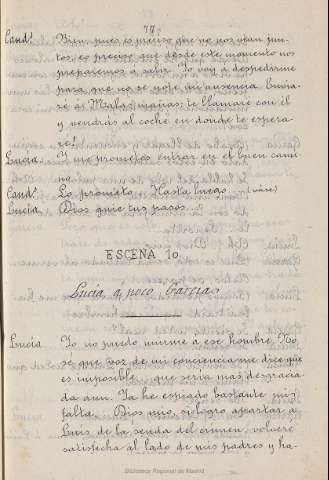 79.
Cand.º Bien, pues es preciso que no nos vean jun-
tos, es preciso que desde este momento nos
preparemos a salir. Yo voy a despedirme
para que no se note mi ausencia. Envia-
ré a Malas-mañas; te llamaré con él
y vendrás al coche en donde te espera-
ré!
Lucía. Y me prometes entrar en el buen cami-
no.
Cand.º Lo prometo. Hasta luego. (váse)
Lucía. Dios guíe tus pasos.
ESCENA 10.
Lucía, a poco García.
Lucía Yo no puedo unirme a ese hombre. No
sé que voz de mi conciencia me dice que
es imposible, que sería más desgracia-
da aun. Ya he espiado bastante mi
falta. Dios mio, si logro apartar a
Luis de la senda del crimen, volveré
satisfecha al lado de mis padres y ha-
Biblioteca Regional de Madrid